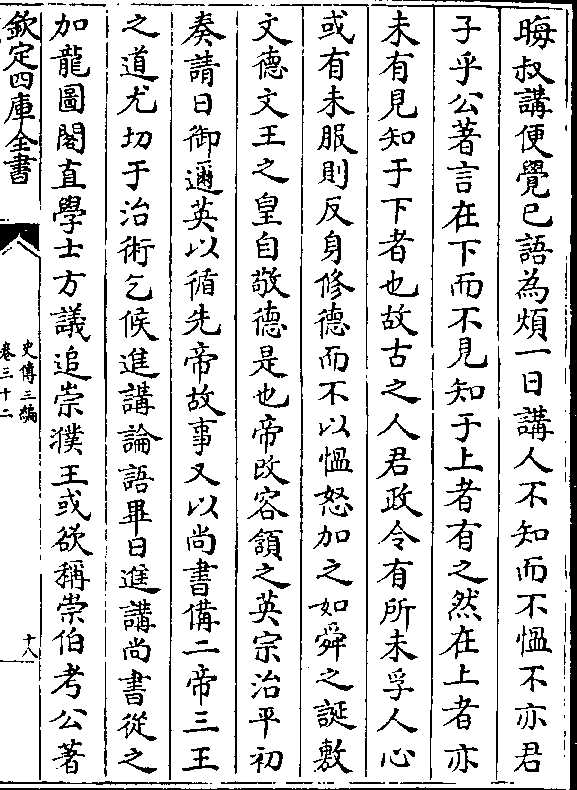 晦叔講便覺已語為煩一日講人不知而不慍不亦君
子乎公著言在下而不見知于上者有之然在上者亦
未有見知于下者也故古之人君政令有所未孚人心
或有未服則反身修德而不以慍怒加之如舜之誕敷
文德文王之皇自敬德是也帝改容頷之英宗治平初
奏請日御邇英以循先帝故事又以尚書備二帝三王
之道尤切于治術乞候進講論語畢日進講尚書從之
加龍圖閣直學士方議追崇濮王或欲稱崇伯考公著
欽定四庫全書
史傳三編
卷三十二
十八